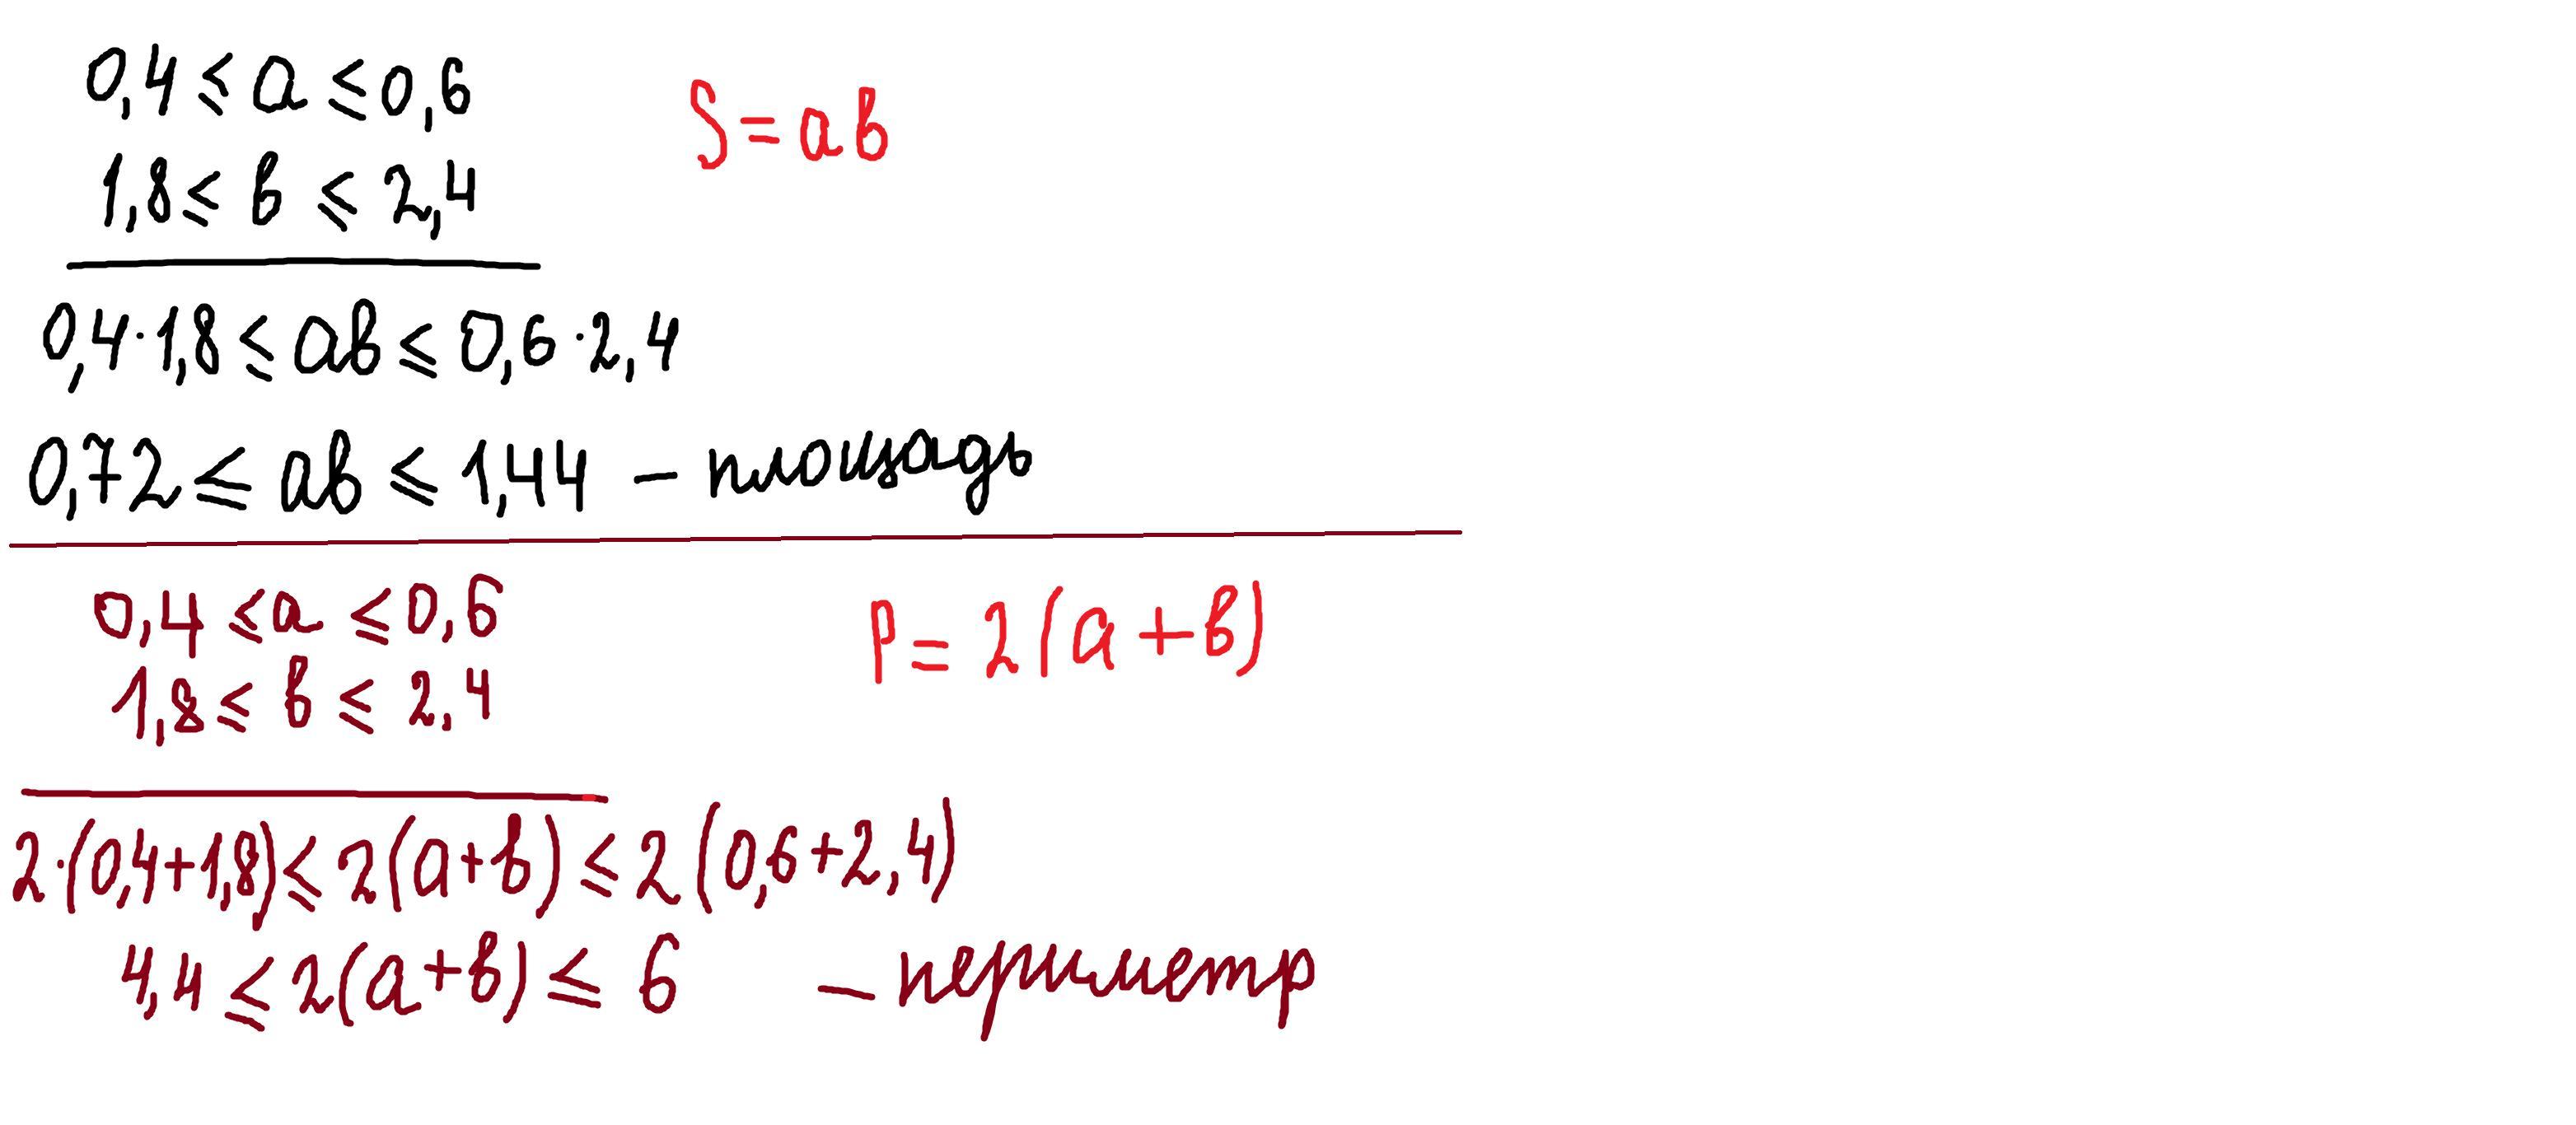 0,4 ≤ a ≤ 0,6
S = ab
1,8 ≤ b ≤ 2,4
0,4·1,8 ≤ ab ≤ 0,6·2,4
0,72 ≤ ab ≤ 1,44 – площадь
0,4 ≤ a ≤ 0,6
P = 2(a+b)
1,8 ≤ b ≤ 2,4
2·(0,4+1,8) ≤ 2(a+b) ≤ 2(0,6+2,4)
4,4 ≤ 2(a+b) ≤ 6 – периметр